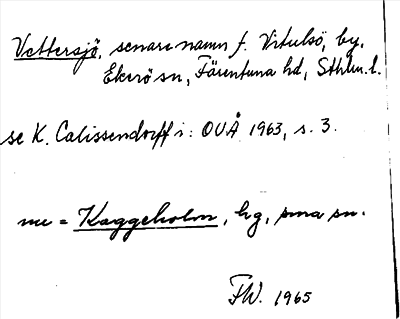 Vettersjö, senare namn f. Vitulsö, by,
Ekerö sn, Färentuna hd, Sthlm. l.
se K. Calissendorff i: OUÅ 1963, s. 3.
nu = Kaggeholm, hg, sma sn.
FW. 1965